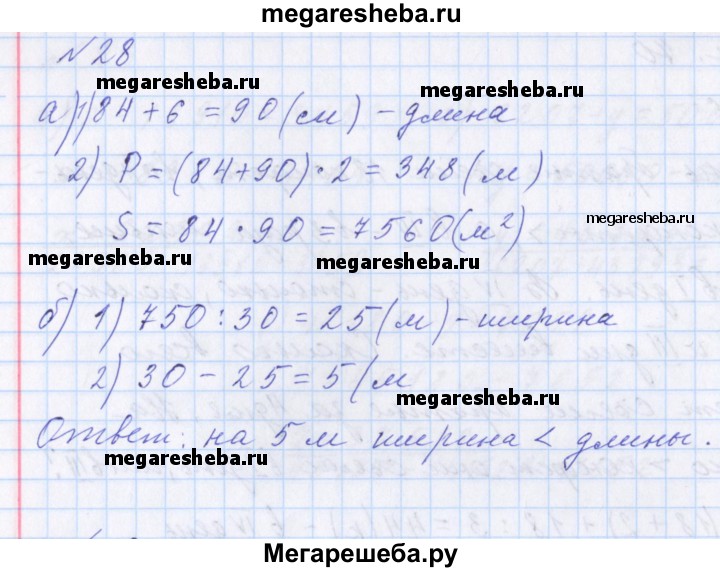 megaresheba.ru
№28
megaresheba.ru
megaresheba.ru
а) 1) 84 + 6 = 90 (см) - длина
2) P = (84+90) · 2 = 348 (м)
S = 84 · 90 = 7560 (м²)
megaresheba.ru
megaresheba.ru
б) 1) 750 : 30 = 25 (м) - ширина
2) 30 - 25 = 5 (м
megaresheba.ru
Ответ: на 5 м ширина < длины.
megaresheba.ru
Мегарешеба.ру